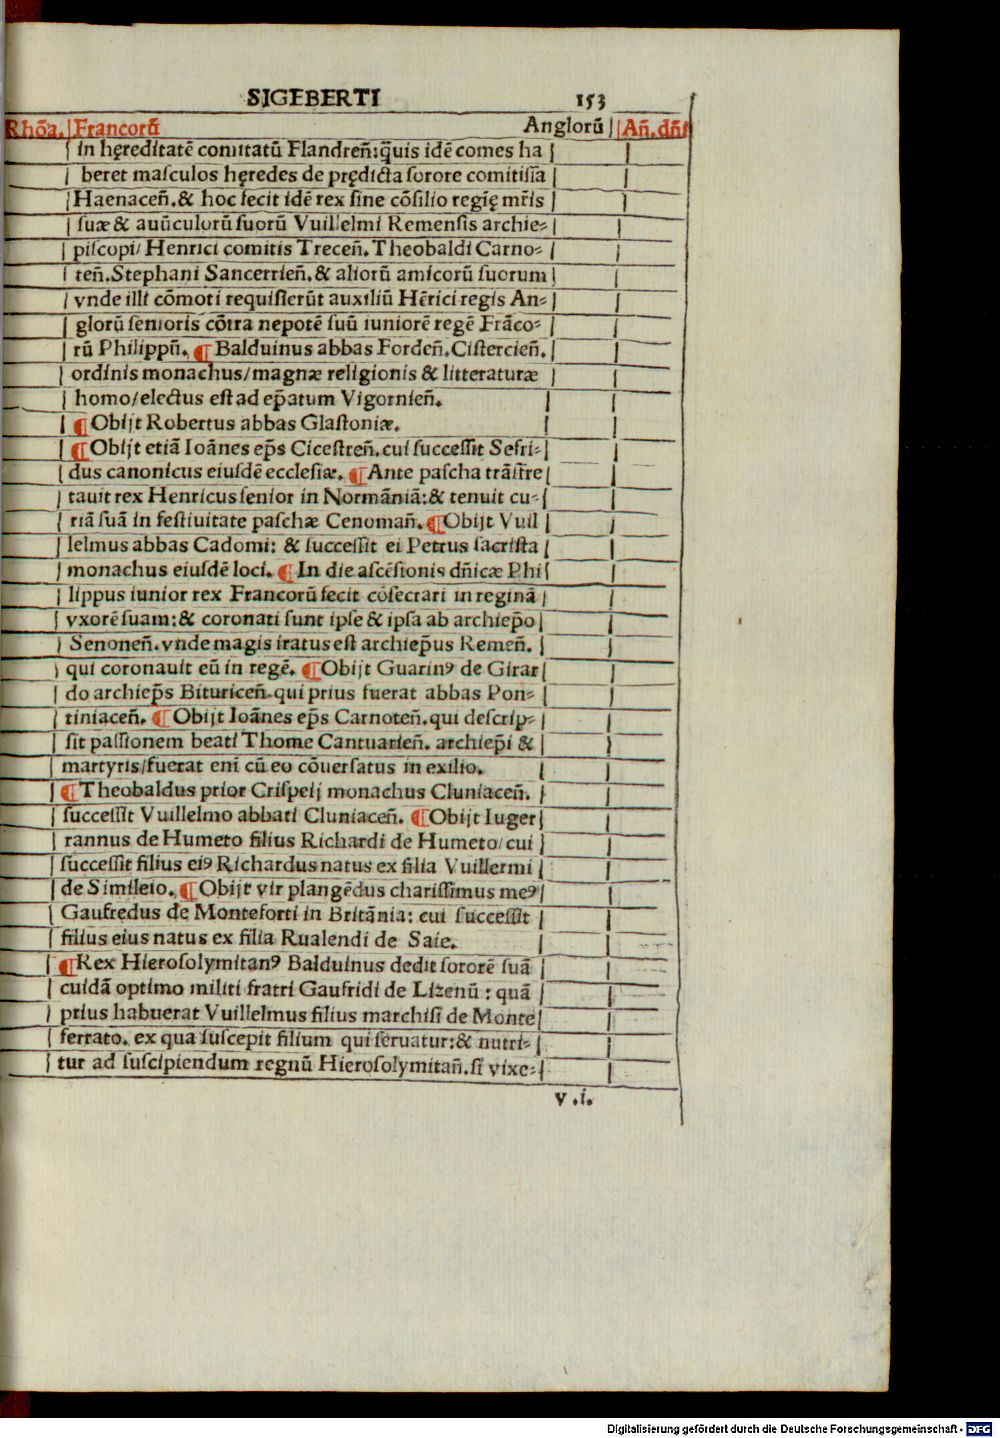 SIGEBERTI 153
Rhõa. Francorũ Anglorũ Añ. dñi
in hęreditatē comitatũ Flandreñ: q̃uis idē comes ha
beret masculos hęredes de prędicta sorore comitissa
Haenaceñ. & hoc fecit idē rex sine cõsilio regię mr̃is
suæ & auũculorũ suorũ Vuillelmi Remensis archie-
piscopi/ Henrici comitis Treceñ. Theobaldi Carno-
teñ. Stephani Sancerrieñ. & aliorũ amicorũ suorum
vnde illi cõmoti requisierũt auxiliũ Hērici regis An-
glorũ senioris cõtra nepotē suũ iuniorē regē Frãco-
rũ Philippũ. ¶ Balduinus abbas Fordeñ. Cistercieñ.
ordinis monachus/ magnæ religionis & litteraturæ
homo/ electus est ad ep̃atum Vigornieñ.
¶ Obijt Robertus abbas Glastoniæ.
¶ Obijt etiã Ioãnes ep̃s Cicestreñ. cui successit Sefri-
dus canonicus eiusdē ecclesiæ. ¶ Ante pascha trãsfre
tauit rex Henricus senior in Normãniã: & tenuit cu-
riã suã in festiuitate paschæ Cenomañ. ¶ Obijt Vuil
lelmus abbas Cadomi: & successit ei Petrus sacrista
monachus eiusdē loci. ¶ In die ascēsionis dñicæ Phi
lippus iunior rex Francorũ fecit cõsecrari in reginã
vxorē suam: & coronati sunt ipse & ipsa ab archiep̃o
Senoneñ. vnde magis iratus est archiep̃us Remeñ.
qui coronauit eũ in regē. ¶ Obijt Guarinꝰ de Girar
do archiep̃s Bituriceñ. qui prius fuerat abbas Pon-
tiniaceñ. ¶ Obijt Ioãnes ep̃s Carnoteñ. qui descrip-
sit passionem beati Thome Cantuarieñ. archiep̃i &
martyris/ fuerat eni cũ eo cõuersatus in exilio.
¶ Theobaldus prior Crispeij monachus Cluniaceñ.
successit Vuillelmo abbati Cluniaceñ. ¶ Obijt Iuger
rannus de Humeto filius Richardi de Humeto/ cui
successit filius eiꝰ Richardus natus ex filia Vuillermi
de Simileio. ¶ Obijt vir plangēdus charissimus meꝰ
Gaufredus de Monteforti in Britãnia: cui successit
filius eius natus ex filia Rualendi de Saie.
¶ Rex Hierosolymitanꝰ Balduinus dedit sororē suã
cuidã optimo militi fratri Gaufridi de Lizenũ : quã
prius habuerat Vuillelmus filius marchisi de Monte
ferrato. ex qua suscepit filium qui seruatur: & nutri-
tur ad suscipiendum regnũ Hierosolymitañ. si vixe-
v .i.
Digitalisierung gefördert durch die Deutsche Forschungsgemeinschaft - DFG